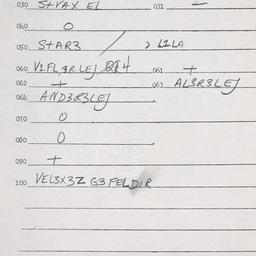 030 S+VAX EL 031 —
040 O
050 STAR3 / > LILA
060 V1FL,3RLEJ 4 061 +
062 + 063 AL3R3LEJ
064 AND3R3LEJ
070 O
080 O
090 +
100 VEL3X3Z G3FELDIR